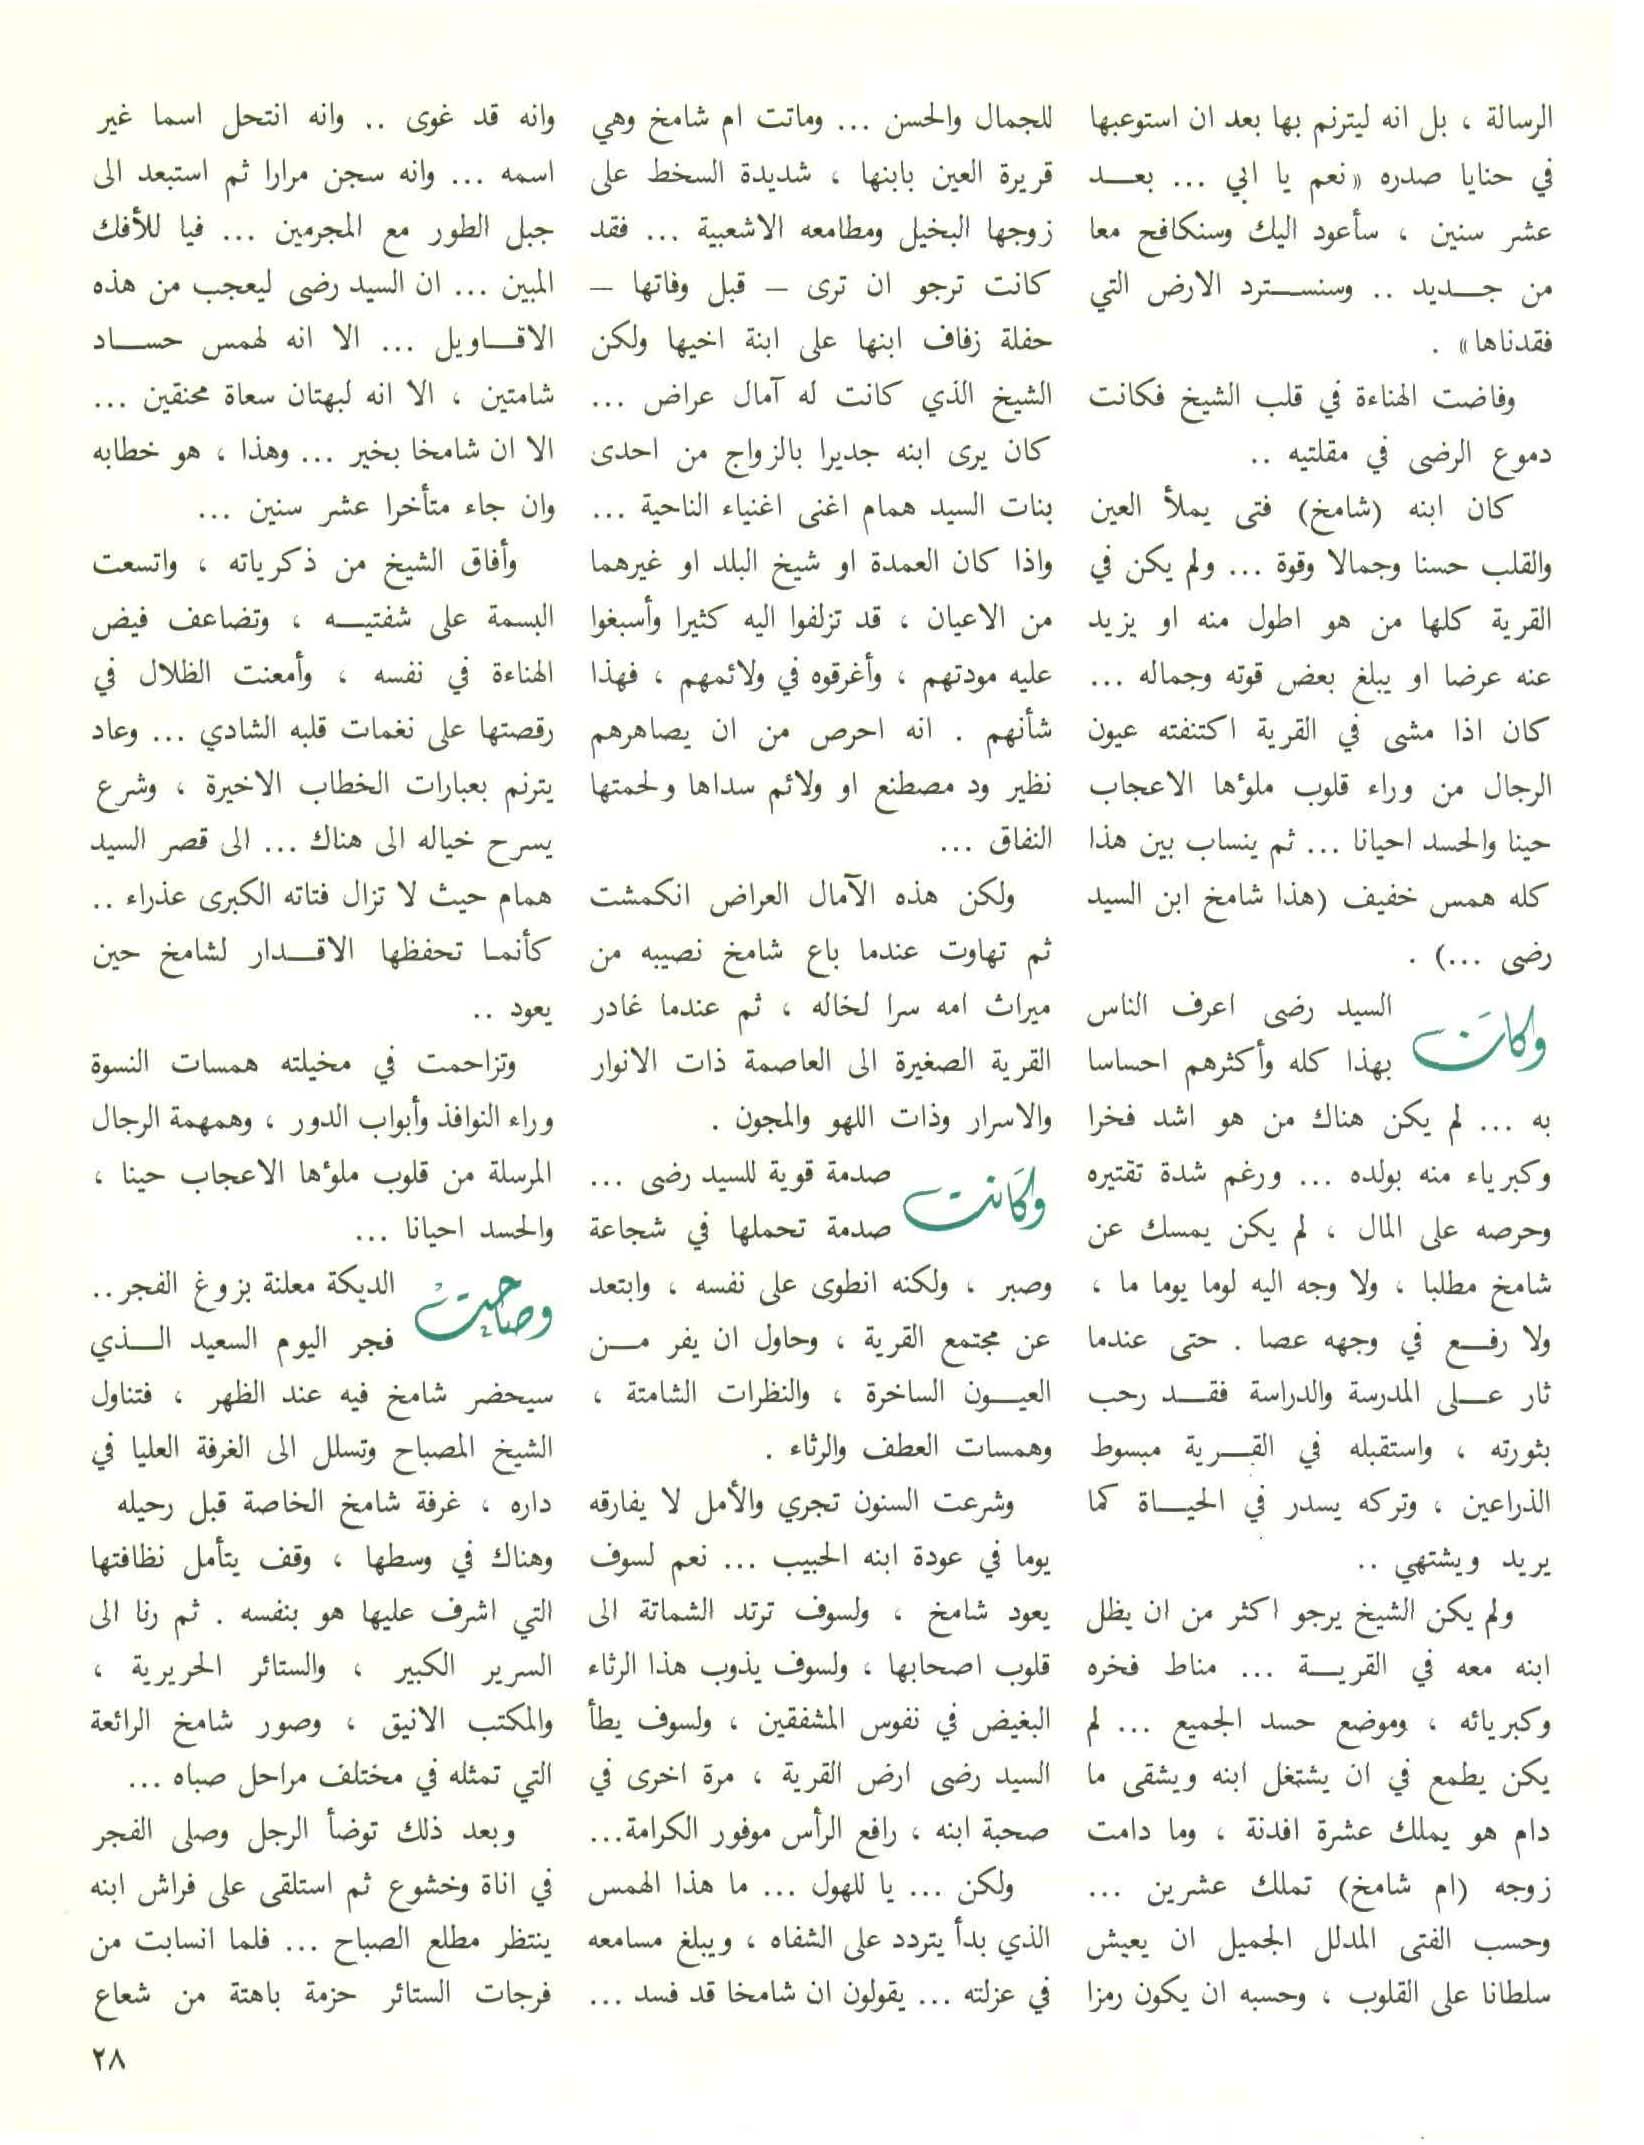 الرسالة ، بل انه ليترنم بها بعد ان استوعبها
في حنايا صدره « نعم يا ابي ... بعـــد
عشر سنين ، سأعود اليك وسنكافح معا
من جـــديد .. وسنســـترد الارض التي
فقدناها » .
وفاضت الهناءة في قلب الشيخ فكانت
دموع الرضى في مقلتيه ..
كان ابنه (شامخ) فتى يملأ العين
والقلب حسنا وجمالا وقوة ... ولم يكن في
القرية كلها من هو اطول منه او يزيد
عنه عرضا او يبلغ بعض قوته وجماله ...
كان اذا مشى في القرية اكتنفته عيون
الرجال من وراء قلوب ملؤها الاعجاب
حينا والحسد احيانا ... ثم ينساب بين هذا
كله همس خفيف (هذا شامخ ابن السيد
رضى ...) .
وكانَ السيد رضى اعرف الناس
بهذا كله وأكثرهم احساسا
به ... لم يكن هناك من هو اشد فخرا
وكبرياء منه بولده ... ورغم شدة تقتيره
وحرصه على المال ، لم يكن يمسك عن
شامخ مطلبا ، ولا وجه اليه لوما يوما ما ،
ولا رفـــع في وجهه عصا . حتى عندما
ثار عـــلى المدرسة والدراسة فقـــد رحب
بثورته ، واستقبله في القـــرية مبسوط
الذراعين ، وتركه يسدر في الحيـــاة كما
يريد ويشتهي ..
ولم يكن الشيخ يرجو اكثر من ان يظل
ابنه معه في القريـــة ... مناط فخره
وكبريائه ، وموضع حسد الجميع ... لم
يكن يطمع في ان يشتغل ابنه ويشقى ما
دام هو يملك عشرة افدنة ، وما دامت
زوجه (ام شامخ) تملك عشرين ...
وحسب الفتى المدلل الجميل ان يعيش
سلطانا على القلوب ، وحسبه ان يكون رمزا
للجمال والحسن ... وماتت ام شامخ وهي
قريرة العين بابنها ، شديدة السخط على
زوجها البخيل ومطامعه الاشعبية ... فقد
كانت ترجو ان ترى – قبل وفاتها –
حفلة زفاف ابنها على ابنة اخيها ولكن
الشيخ الذي كانت له آمال عراض ...
كان يرى ابنه جديرا بالزواج من احدى
بنات السيد همام اغنى اغنياء الناحية ...
واذا كان العمدة او شيخ البلد او غيرهما
من الاعيان ، قد تزلفوا اليه كثيرا وأسبغوا
عليه مودتهم ، وأغرقوه في ولائمهم ، فهذا
شأنهم . انه احرص من ان يصاهرهم
نظير ود مصطنع او ولائم سداها ولحمتها
النفاق ...
ولكن هذه الآمال العراض انكمشت
ثم تهاوت عندما باع شامخ نصيبه من
ميراث امه سرا لخاله ، ثم عندما غادر
القرية الصغيرة الى العاصمة ذات الانوار
والاسرار وذات اللهو والمجون .
وكَانت صدمة قوية للسيد رضى ...
صدمة تحملها في شجاعة
وصبر ، ولكنه انطوى على نفسه ، وابتعد
عن مجتمع القرية ، وحاول ان يفر مـــن
العيـــون الساخرة ، والنظرات الشامتة ،
وهمسات العطف والرثاء .
وشرعت السنون تجري والأمل لا يفارقه
يوما في عودة ابنه الحبيب ... نعم لسوف
يعود شامخ ، ولسوف ترتد الشماتة الى
قلوب اصحابها ، ولسوف يذوب هذا الرثاء
البغيض في نفوس المشفقين ، ولسوف يطأ
السيد رضى ارض القرية ، مرة اخرى في
صحبة ابنه ، رافع الرأس موفور الكرامة...
ولكن ... يا للهول ... ما هذا الهمس
الذي بدأ يتردد على الشفاه ، ويبلغ مسامعه
في عزلته ... يقولون ان شامخا قد فسد ...
وانه قد غوى .. وانه انتحل اسما غير
اسمه ... وانه سجن مرارا ثم استبعد الى
جبل الطور مع المجرمين ... فيا للأفك
المبين ... ان السيد رضى ليعجب من هذه
الاقـــاويل ... الا انه لهمس حســـاد
شامتين ، الا انه لبهتان سعاة محنقين ...
الا ان شامخا بخير ... وهذا ، هو خطابه
وان جاء متأخرا عشر سنين ...
وأفاق الشيخ من ذكرياته ، واتسعت
البسمة على شفتيـــه ، وتضاعف فيض
الهناءة في نفسه ، وأمعنت الظلال في
رقصتها على نغمات قلبه الشادي ... وعاد
يترنم بعبارات الخطاب الاخيرة ، وشرع
يسرح خياله الى هناك ... الى قصر السيد
همام حيث لا تزال فتاته الكبرى عذراء ..
كأنمـا تحفظها الاقـــدار لشامخ حين
يعود ..
وتزاحمت في مخيلته همسات النسوة
وراء النوافذ وأبواب الدور ، وهمهمة الرجال
المرسلة من قلوب ملؤها الاعجاب حينا ،
والحسد احيانا ...
وصَاحتْ الديكة معلنة بزوغ الفجر..
فجر اليوم السعيد الـــذي
سيحضر شامخ فيه عند الظهر ، فتناول
الشيخ المصباح وتسلل الى الغرفة العليا في
داره ، غرفة شامخ الخاصة قبل رحيله
وهناك في وسطها ، وقف يتأمل نظافتها
التي اشرف عليها هو بنفسه . ثم رنا الى
السرير الكبير ، والستائر الحريرية ،
والمكتب الانيق ، وصور شامخ الرائعة
التي تمثله في مختلف مراحل صباه ...
وبعد ذلك توضأ الرجل وصلى الفجر
في اناة وخشوع ثم استلقى على فراش ابنه
ينتظر مطلع الصباح ... فلما انسابت من
فرجات الستائر حزمة باهتة من شعاع
٢٨